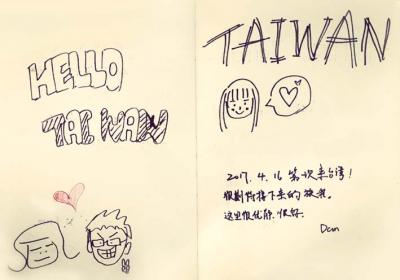 HELLO
TAIWAN
TAIWAN
2017. 4. 16 第一次来台湾!
很期待接下来的旅程。
这里很优静.很好.
Dan